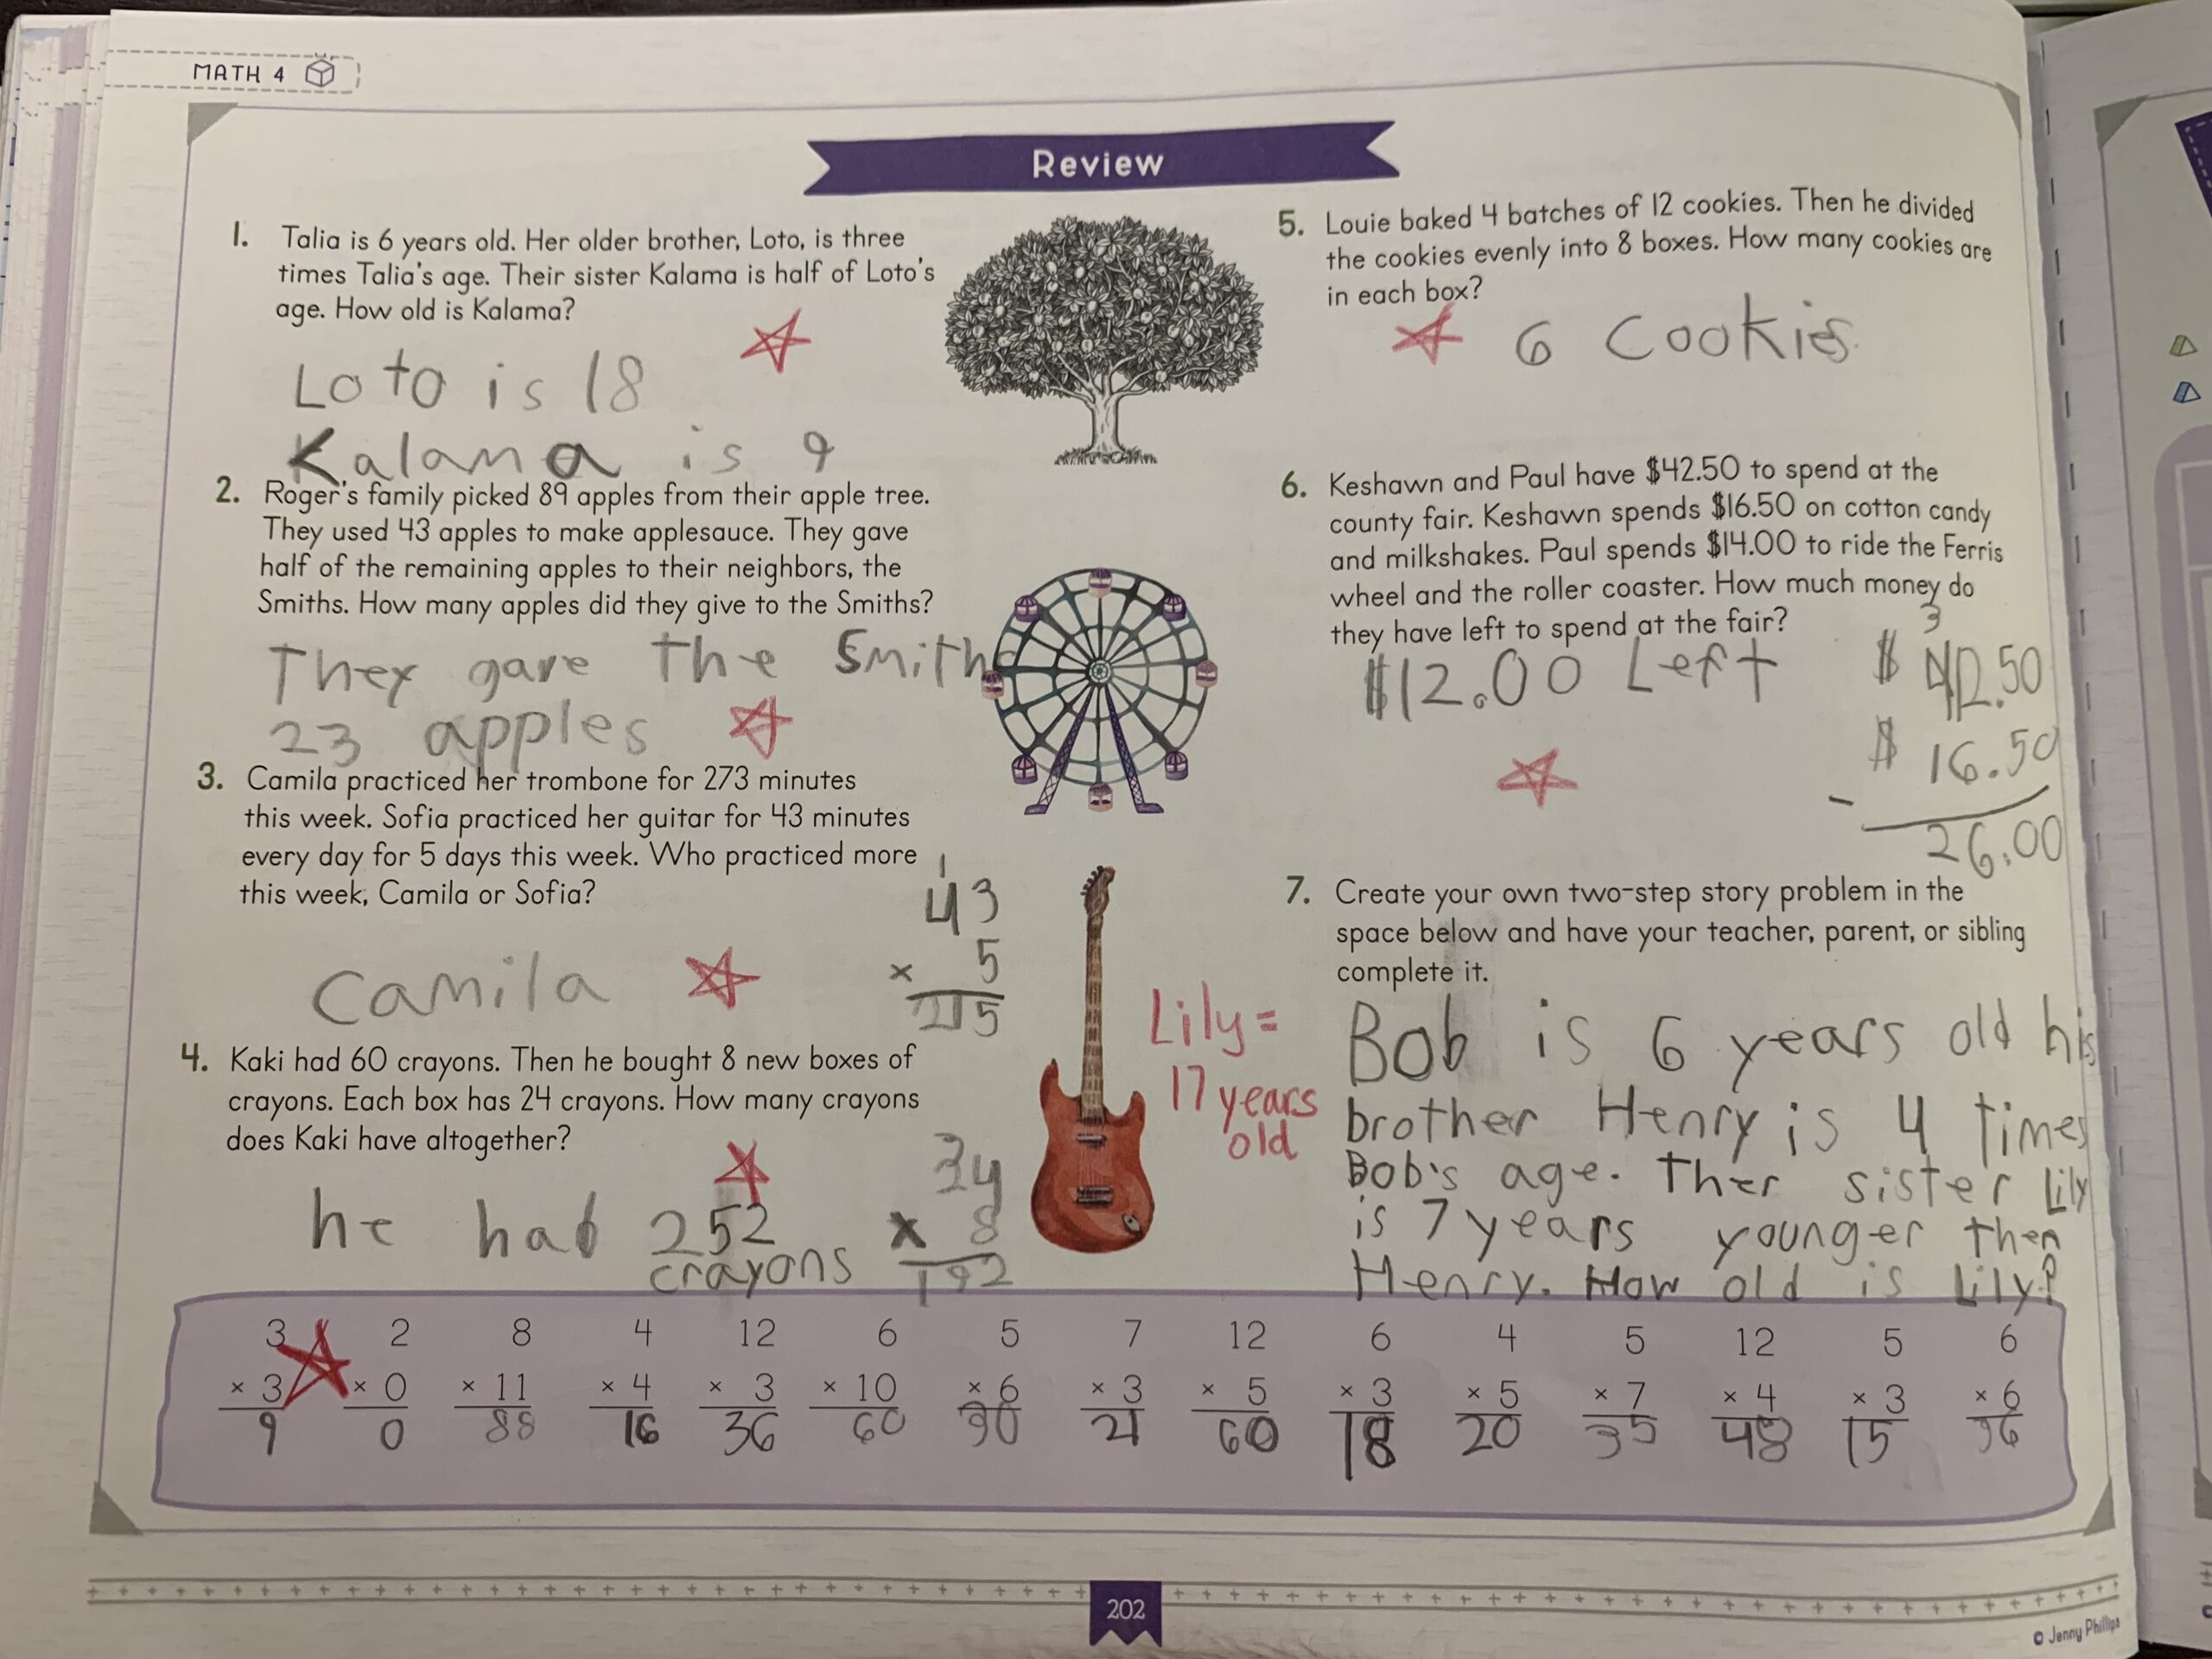 MATH 4
Review
1. Talia is 6 years old. Her older brother, Loto, is three
times Talia's age. Their sister Kalama is half of Loto's
age. How old is Kalama?
Loto is 18
Kalama is 9
2. Roger's family picked 89 apples from their apple tree.
They used 43 apples to make applesauce. They gave
half of the remaining apples to their neighbors, the
Smiths. How many apples did they give to the Smiths?
They gave the Smiths
23 apples
3. Camila practiced her trombone for 273 minutes
this week. Sofia practiced her guitar for 43 minutes
every day for 5 days this week. Who practiced more
this week, Camila or Sofia?
Camila
1
43
× 5
215
4. Kaki had 60 crayons. Then he bought 8 new boxes of
crayons. Each box has 24 crayons. How many crayons
does Kaki have altogether?
he had 252
crayons
3
24
× 8
192
5. Louie baked 4 batches of 12 cookies. Then he divided
the cookies evenly into 8 boxes. How many cookies are
in each box?
6 Cookies
6. Keshawn and Paul have $42.50 to spend at the
county fair. Keshawn spends $16.50 on cotton candy
and milkshakes. Paul spends $14.00 to ride the Ferris
wheel and the roller coaster. How much money do
they have left to spend at the fair?
$12.00 Left
3
$ 42.50
$ 16.50
-
26.00
7. Create your own two-step story problem in the
space below and have your teacher, parent, or sibling
complete it.
Bob is 6 years old his
brother Henry is 4 times
Bob's age. Ther sister Lily
is 7 years younger then
Henry. How old is Lily?
Lily =
17 years
old
3 2 8 4 12 6 5 7 12 6 4 5 12 5 6
× 3 × 0 × 11 × 4 × 3 × 10 × 6 × 3 × 5 × 3 × 5 × 7 × 4 × 3 × 6
9 0 88 16 36 60 30 21 60 18 20 35 48 15 36
202
© Jenny Phillips